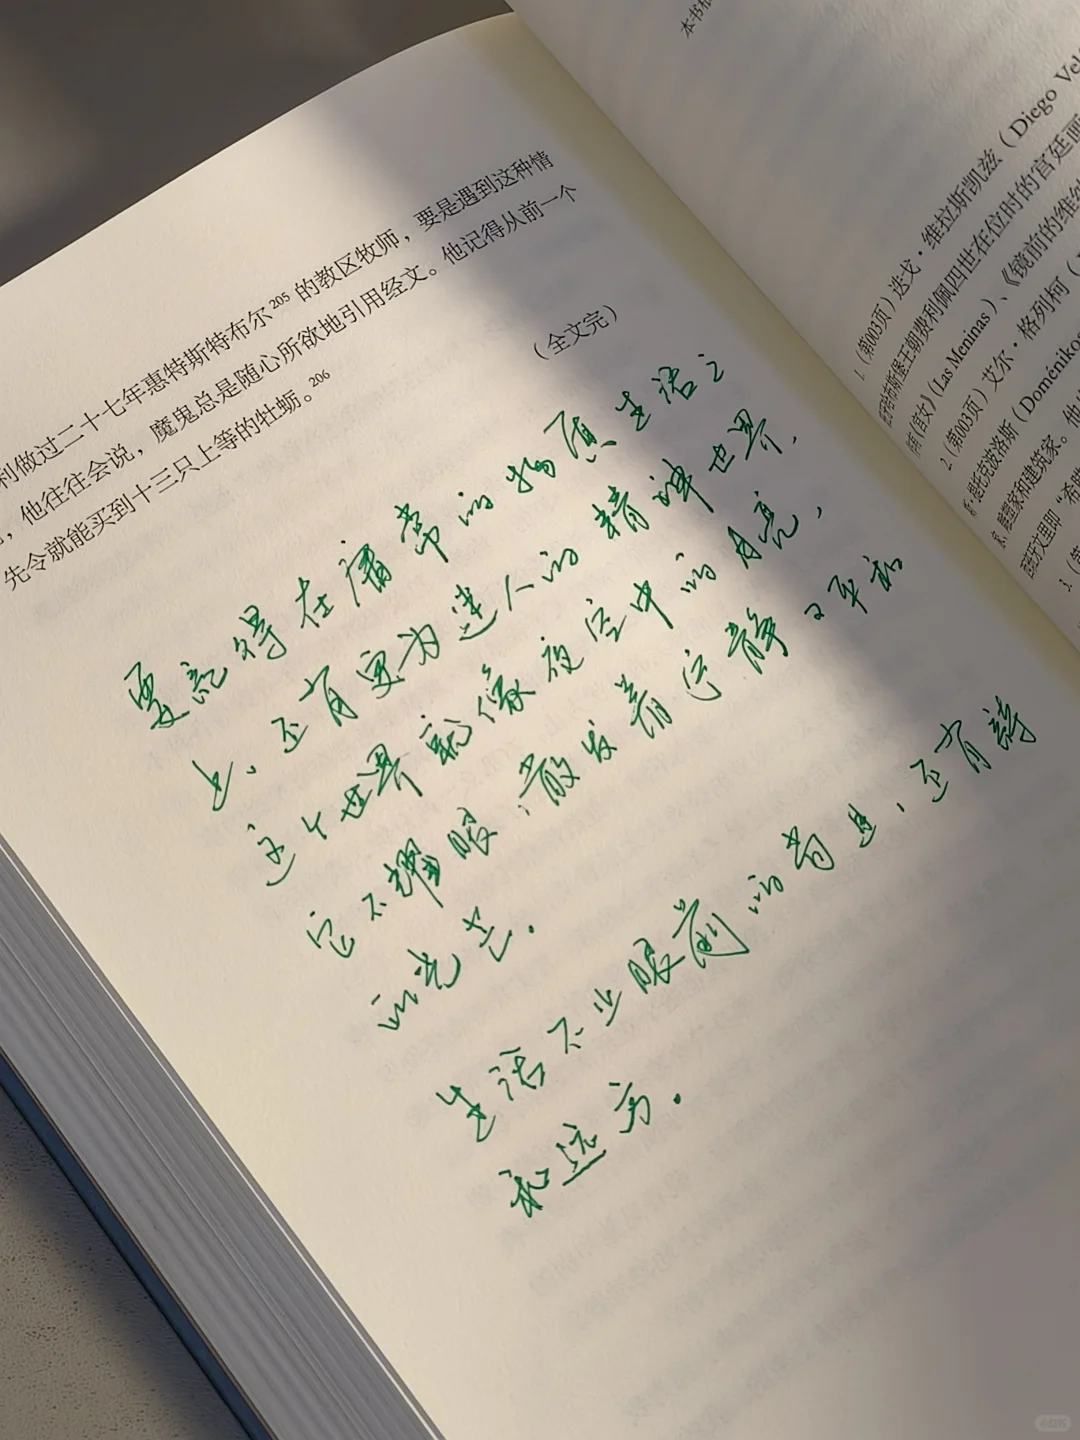 利做过二十七年惠特斯特布尔205的教区牧师，要是遇到这种情
，他往往会说，魔鬼总是随心所欲地引用经文。他记得从前一个
先令就能买到十三只上等的牡蛎。206
（全文完）
要记得在庸常的物质生活之
上、还有更为迷人的精神世界,
这个世界就像夜空中的月亮，
它不耀眼，散发着宁静又平和
的光芒。
生活不止眼前的苟且，还有詩
和远方。
本书相
1.（第003页）迭戈·维拉斯凯兹（Diego Vel
哈布斯堡王朝费利佩四世在位时的宫廷画
《宫女》（Las Meninas）、《镜前的维纳
2.（第003页）艾尔·格列柯（
斯·提托克波洛斯（Doménikos
家、雕塑家和建筑家。他
西班牙文里即“希腊
3.（第